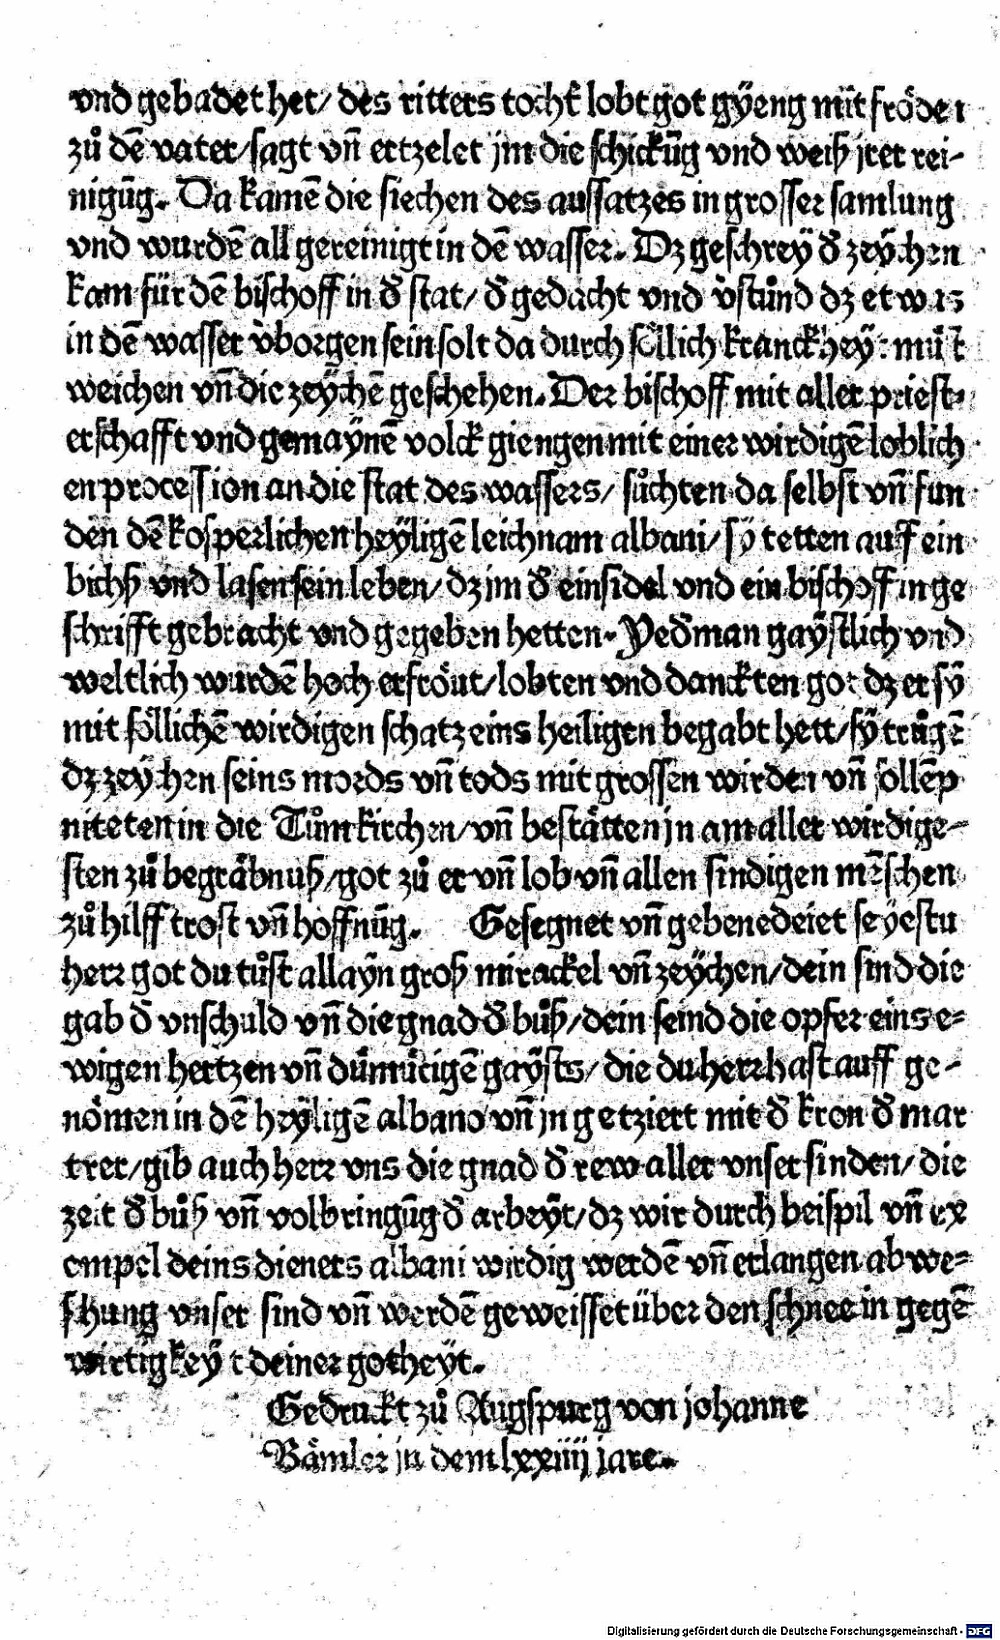 vnd gebadet het/ des ritters tocht̄ lobt got gÿeng mit fröden
zů dē vater/ sagt vn̄ ertzelet jm die schickūg vnd weiß jrer rei-
nigūg. Da kamē die siechen des aussatzes in grosser samlung
vnd wurdē all gereinigt in dē wasser. Dz geschreÿ d̄ zeÿchen
kam für dē bischoff in d̄ stat/ d̄ gedacht vnd v̄stůnd dz etwas
in dē wasser v̄borgen sein solt da durch söllich kranckheÿt můst
weichen vn̄ die zeÿchē geschehen. Der bischoff mit aller priest-
erschafft vnd gemaÿnē volck giengen mit einer wirdigē loblich
en procession an die stat des wassers/ sůchten da selbst vn̄ fun
den dē kosperlichen heÿligē leichnam albani/ sÿ tetten auff ein
bichß vnd lasen sein leben/ dz im d̄ einsidel vnd ein bischoff in ge
schrifft gebracht vnd gegeben hetten. Yed̄man gaÿstlich vnd
weltlich wurdē hoch erfröut/ lobten vnd danckten got dz er sÿ
mit söllichē wirdigen schatz eins heiligen begabt hett/ sÿ trůgē
dz zeÿchen seins mords vn̄ tods mit grossen wirden vn̄ sollēp
niteten in die Tůmkirchen/ vn̄ bestätten jn am aller wirdige-
sten zů begräbnuß/ got zů er vn̄ lob vn̄ allen sindigen mēschen
zů hilff trost vn̄ hoffnūg. Gesegnet vn̄ gebenedeiet seÿestu
herr got du tůst allaÿn groß mirackel vn̄ zeÿchen/ dein sind die
gab d̄ vnschuld vn̄ die gnad d̄ bůß/ dein seind die opfer eins e-
wigen hertzen vn̄ důmůtigē gaÿsts/ die du herr hast auff ge-
nömen in dē heÿligē albano vn̄ jn getziert mit d̄ kron d̄ mar
trer/ gib auch herr vns die gnad d̄ rew aller vnser sinden/ die
zeit d̄ bůß vn̄ volbringūg d̄ arbeÿt/ dz wir durch beispil vn̄ ex
empel deins dieners albani wirdig werdē vn̄ erlangen ab we-
schung vnser sind vn̄ werdē geweisset über den schnee in gegē
wirtigkeÿt deiner gotheÿt.
Gedruckt zů Augspurg von johanne
Bämler in dem lxxiiij jare.
Digitalisierung gefördert durch die Deutsche Forschungsgemeinschaft - DFG